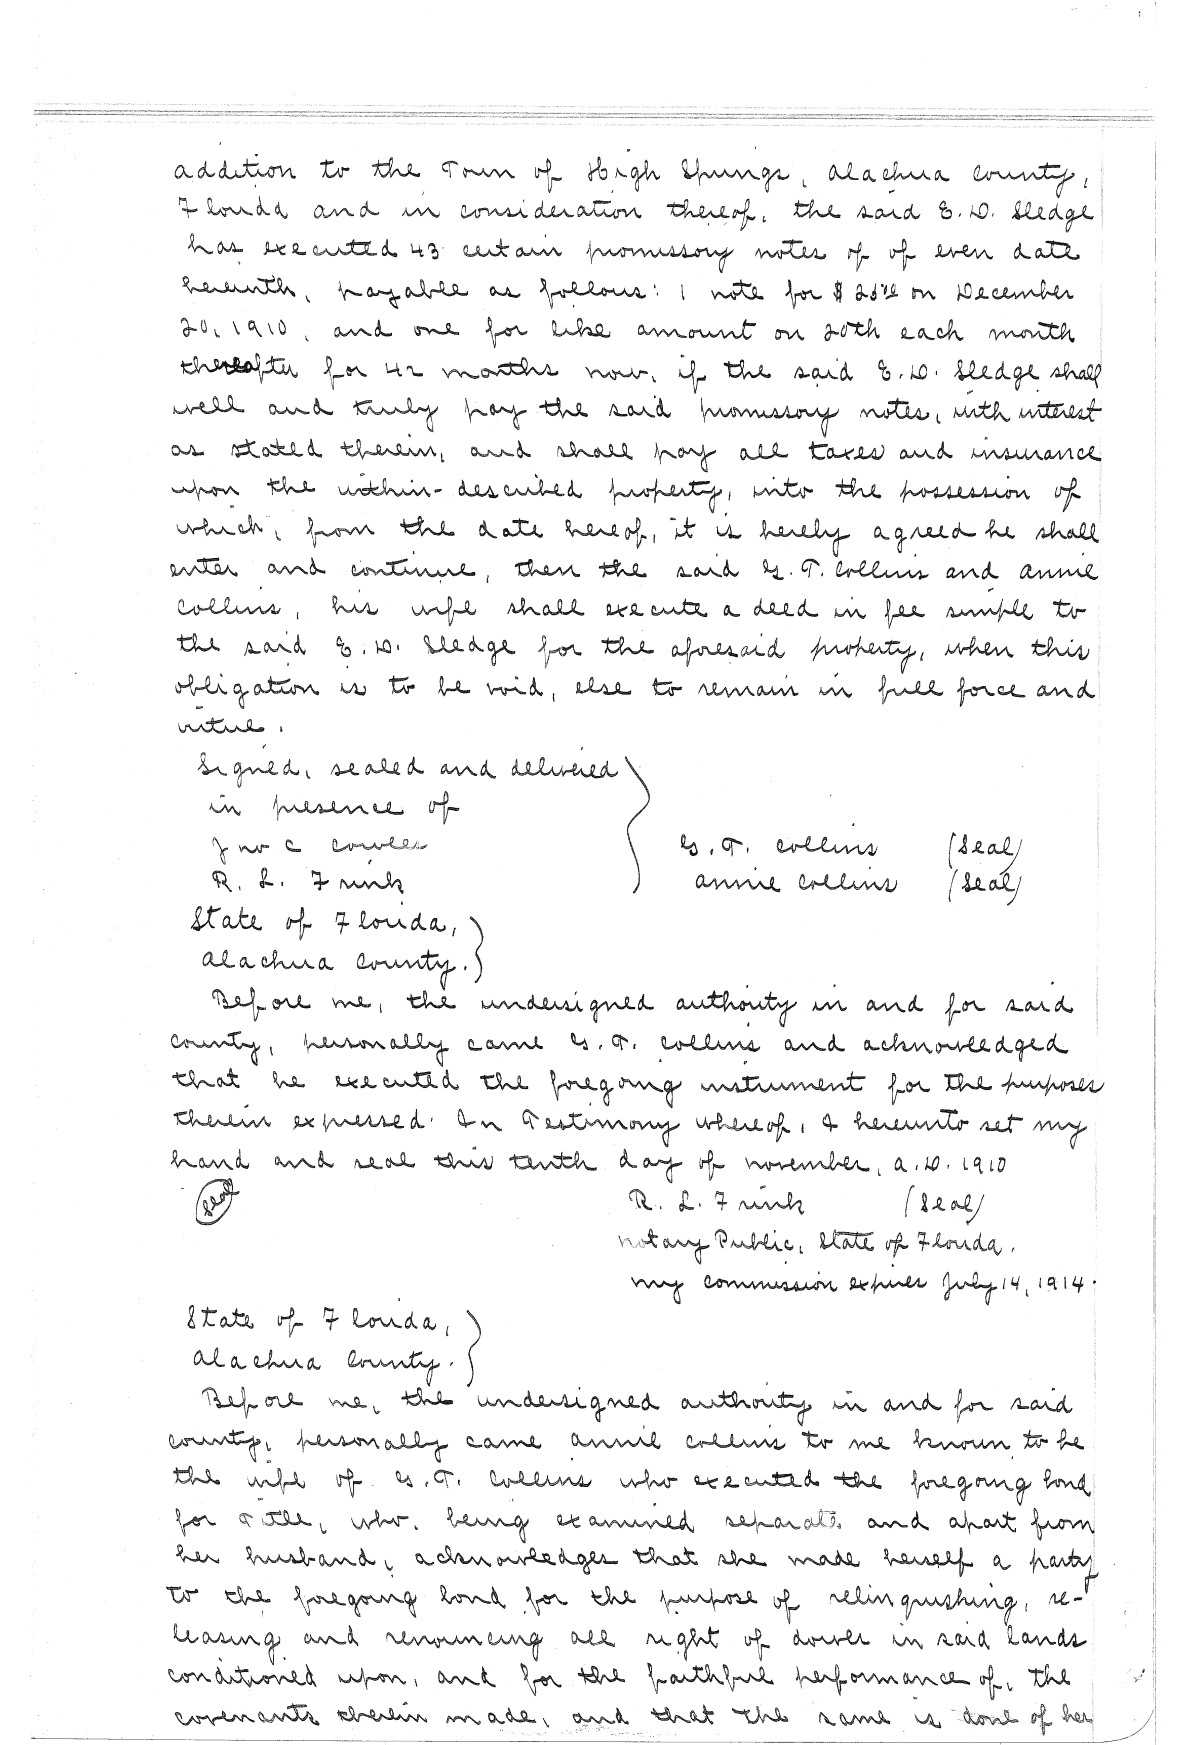 addition to the Town of High Springs, Alachua County,
Florida and in consideration thereof, the said E. D. Sledge
has executed 43 certain promissory notes of of even date
herewith, payable as follows: 1 note for $ on December
20, 1910, and one for like amount on 20th each month
thereafter for 42 months now, if the said E. D. Sledge shall
well and truly pay the said promissory notes, with interest
as stated therein, and shall pay all taxes and insurance
upon the within-described property, into the possession of
which, from the date hereof, it is hereby agreed he shall
enter and continue, then the said G. T. Collins and Annie
Collins, his wife shall execute a deed in fee simple to
the said E. D. Sledge for the aforesaid property, when this
obligation is to be void, else to remain in full force and
virtue.
Signed, sealed and delivered
in presence of
Jno C Cowles
G. T. Collins (Seal)
R. L. Frink
Annie Collins (Seal)
State of Florida,
Alachua County.
Before me, the undersigned authority in and for said
county, personally came G. T. Collins and acknowledged
that he executed the foregoing instrument for the purposes
therein expressed. In Testimony whereof, I hereunto set my
hand and seal this tenth day of November, A. D. 1910
Seal
R. L. Frink (Seal)
Notary Public, State of Florida.
my commission expires July 14, 1914.
State of Florida,
Alachua County.
Before me, the undersigned authority in and for said
county, personally came Annie Collins to me known to be
the wife of G. T. Collins who executed the foregoing bond
for Title, who, being examined separate and apart from
her husband, acknowledges that she made herself a party
to the foregoing bond for the purpose of relinquishing, re-
leasing and renouncing all right of dower in said lands
conditioned upon, and for the faithful performance of, the
covenants therein made, and that the same is done of her